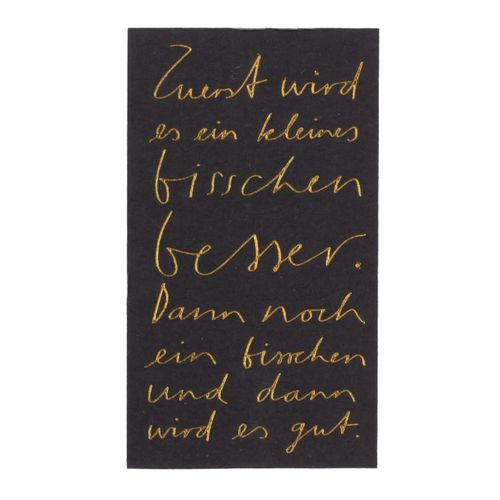 Zuerst wird
es ein kleines
bisschen
besser.
Dann noch
ein bisschen
und dann
wird es gut.